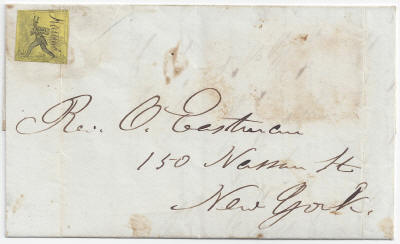 Rev. O. Eastman
150 Nassau St
New York.